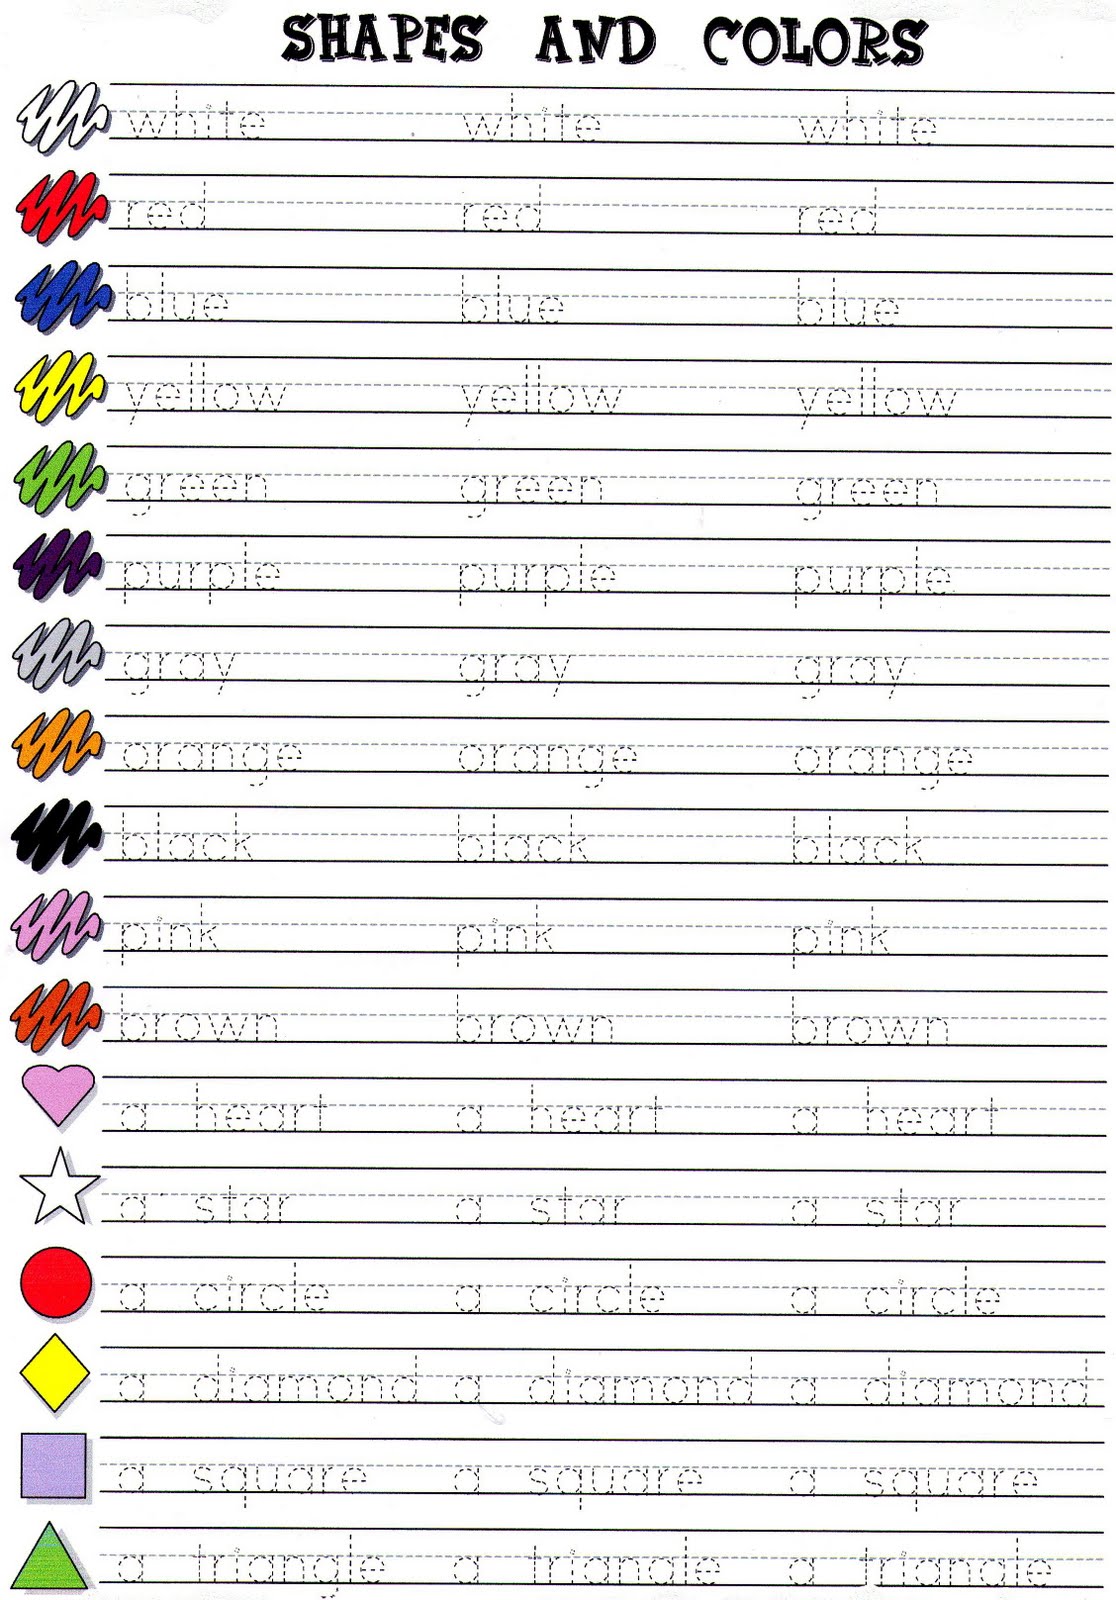 SHAPES AND COLORS
white white white
red red red
blue blue blue
yellow yellow yellow
green green green
purple purple purple
gray gray gray
orange orange orange
black black black
pink pink pink
brown brown brown
a heart a heart a heart
a star a star a star
a circle a circle a circle
a diamond a diamond a diamond
a square a square a square
a triangle a triangle a triangle